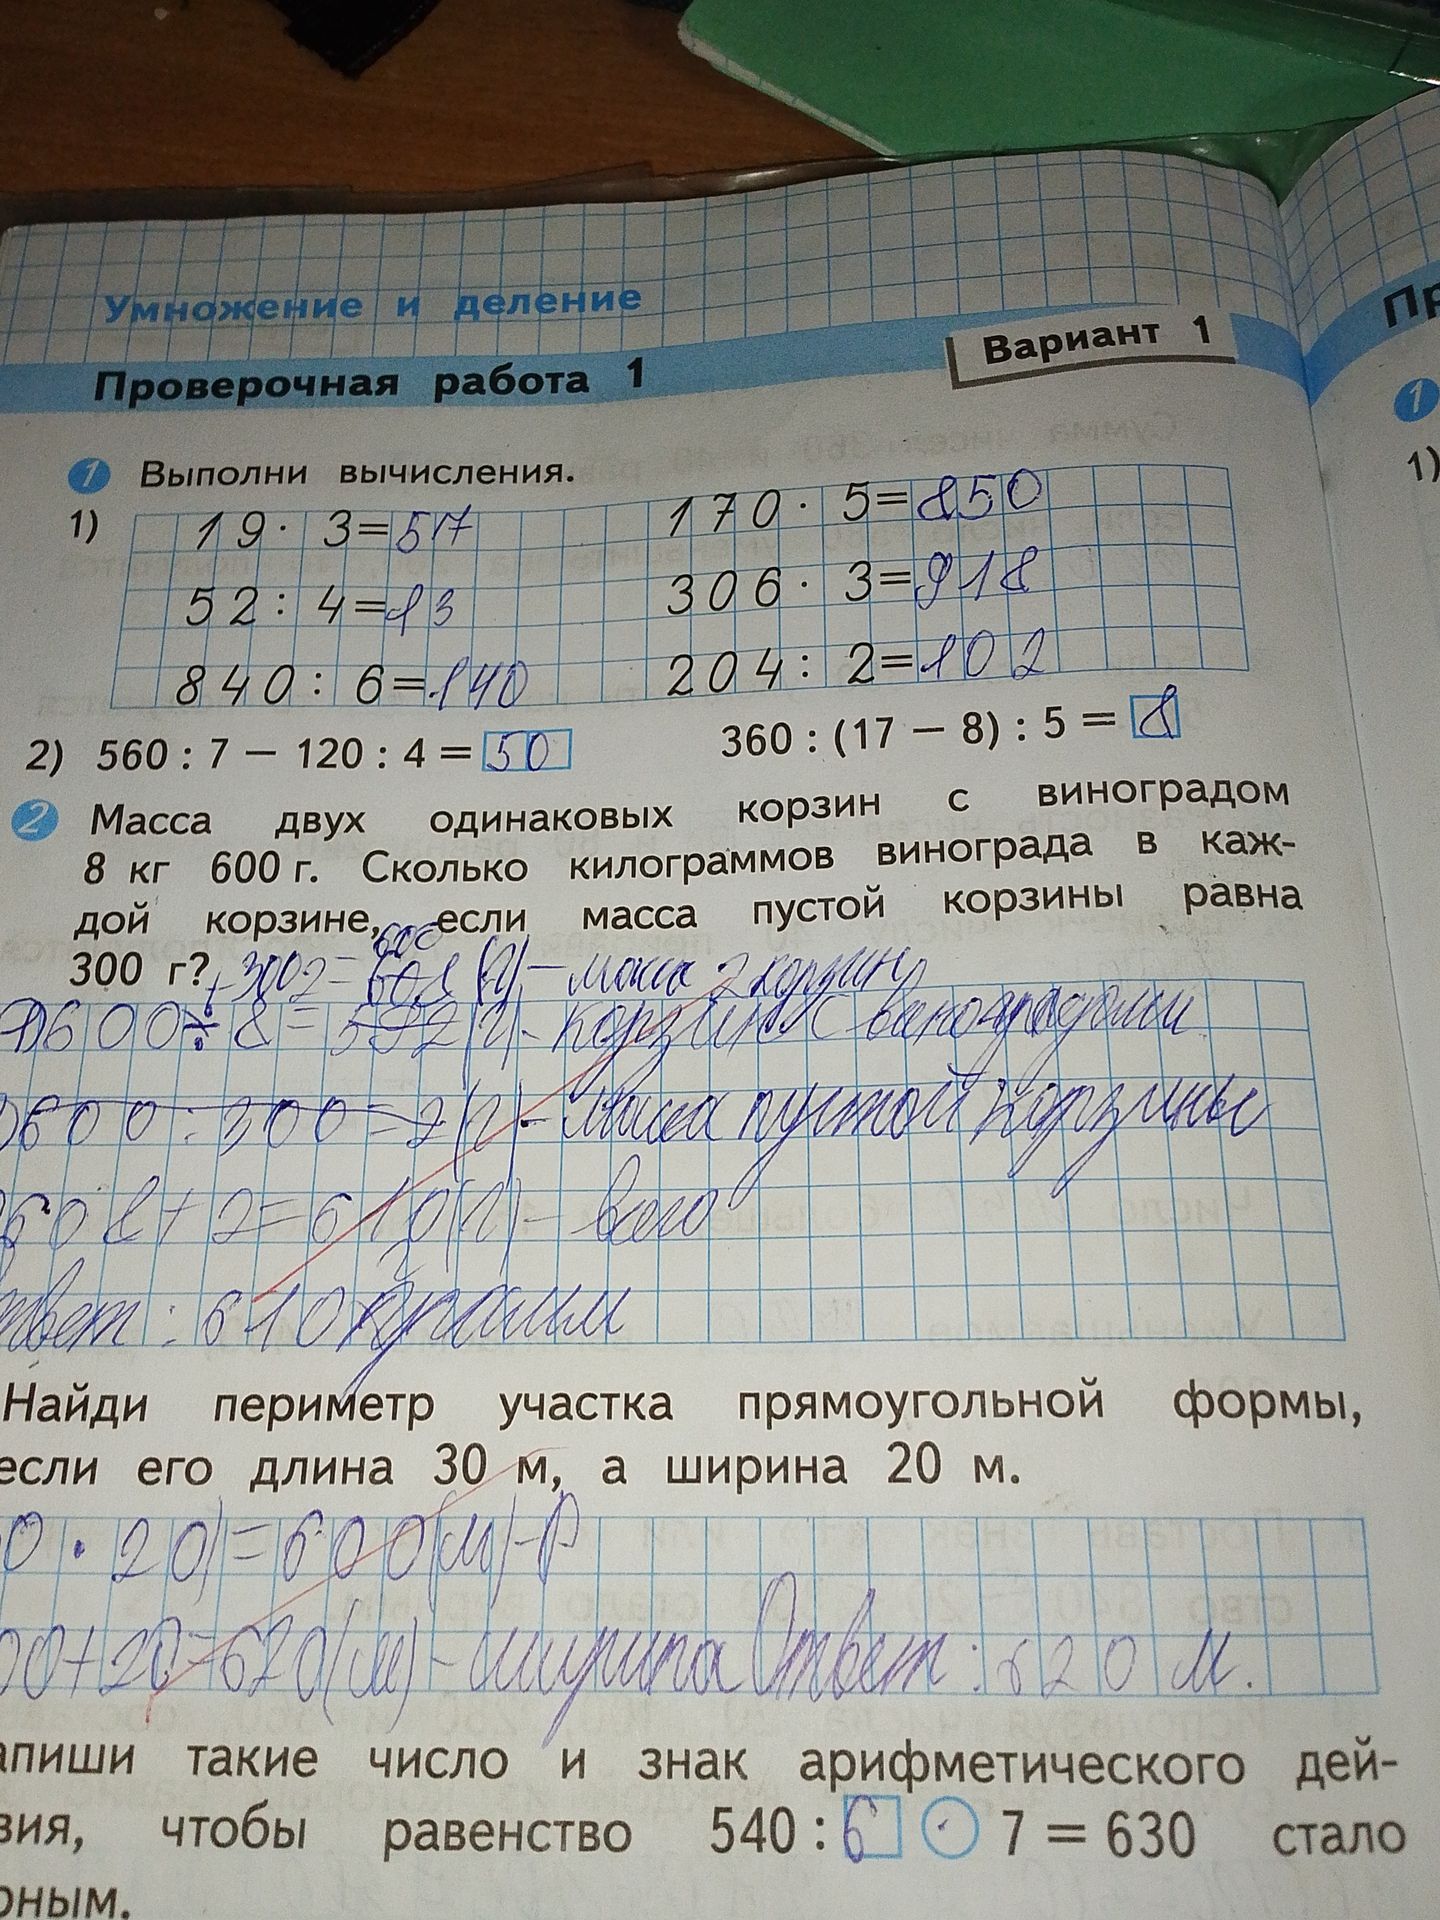 Умножение и деление
Проверочная работа 1
Вариант 1
Пр
1 Выполни вычисления.
1
1) 19 · 3 = 57 170 · 5 = 850
1)
52 : 4 = 13 306 · 3 = 918
840 : 6 = 140 204 : 2 = 102
2) 560 : 7 − 120 : 4 = 50 360 : (17 − 8) : 5 = 8
2 Масса двух одинаковых корзин с виноградом
8 кг 600 г. Сколько килограммов винограда в каж-
дой корзине, если масса пустой корзины равна
300 г?
600
608 (г) − масса 2 корзин
600 8 = 592 (г) - корзин с виноградами
600 : 300 = 2 (г) - масса пустой корзины
608 + 2 = 610 (г) − всего
твет : 610 грамм
Найди периметр участка прямоугольной формы,
если его длина 30 м, а ширина 20 м.
0 · 20) = 600 (м) − Р
00 + 20 = 620 (м) - ширина Ответ : 620 м.
апиши такие число и знак арифметического дей-
вия, чтобы равенство 540 : 6 · 7 = 630 стало
рным.